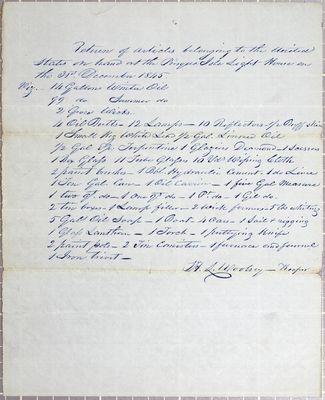 Return of articles belonging to the United
States on hand at the Presque Isle Light House on
the 31st December 1845
Viz. 14 Gallons Winter Oil
99 do Summer do
2 Gross Wicks
4 Oil Butts - 12 Lamps - 10 Reflectors
1 Small Keg White Lead 1/2 Gal. Linseed Oil
1/2 Gal Sp. Turpentine 1 Glaziers Diamond 1 Scissors
Glass 11 Tube Glasses 10 Yds Wiping Cloth
2 paint brushes - 1 Bbl. Hydraulic Cement. 1 do Lime
1 Ten Gal. Can - 1 Oil Carrier - 1 five Gal Measure
1 two qt. do - 1 One qt. do - 1 Pt. do - 1 Gil do.
2 tin boxes - 1 Lamp filler - 2 wick formers
5 Gall Oil Soap - 1 Boat 4 Oars - 1 Sail & rigging
1 Glass Lanthern - 1 Torch - 1 puttying Knife
2 paint pots - 2 Tin Canisters - 1 furnace and funnel
1 Iron trivet -
H. L. Woolsey - Keeper